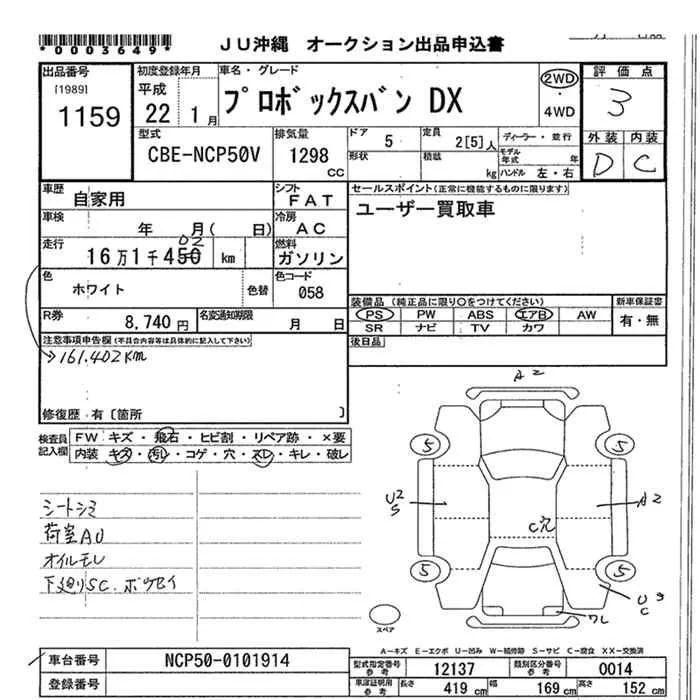 *0003649*
JU沖縄 オークション出品申込書
出品番号
[1989]
1159
初度登録年月
平成
22 1月
車名・グレード
プロボックスバン DX
2WD
・
4WD
評価点
3
外装 内装
D C
型式
CBE-NCP50V
排気量
1298
CC
ドア
5
定員
2[5]人
形状
積載
kg
ディーラー・並行
モデル年式 年
ハンドル 左・右
車歴
自家用
シフト
FAT
車検
年 月( 日)
冷房
AC
走行
16万1千450 km
02
燃料
ガソリン
色
ホワイト
色替
色コード
058
R券
8,740円
名変通知期限
月 日
セールスポイント(正常に機能するものに限ります)
ユーザー買取車
装備品 (純正品に限り○をつけてください)
PS PW ABS エアB AW
SR ナビ TV カワ
新車保証書
有・無
後日品
注意事項申告欄(不具合内容等は具体的に記入して下さい)
→161.402KM
修復歴・有〔箇所 〕
検査員
記入欄
FW キズ・飛石・ヒビ割・リペア跡・×要
内装 キズ・汚レ・コゲ・穴・スレ・キレ・破レ
シートシミ
荷室AU
オイルモレ
下廻りSC. ボウセイ
A2
5
5
U2
S
A2
C穴
5
5
U3
C
ワレ
スペア
A-キズ E-エクボ U-凹み W-補修跡 S-サビ C-腐食 XX-交換済
車台番号
NCP50-0101914
登録番号
型式指定番号
参考
12137
類別区分番号
参考
0014
車庫証明用
参考
長さ 419cm 幅 169cm 高さ 152cm